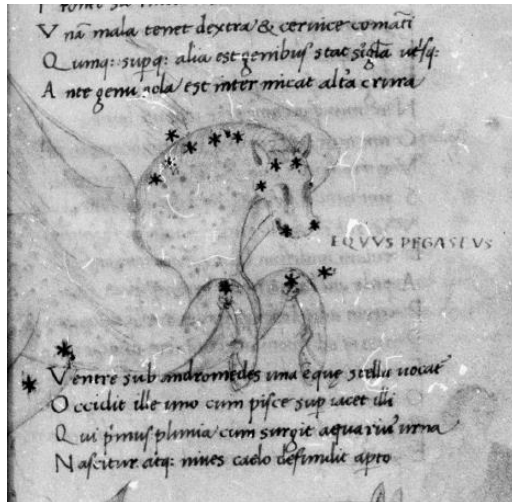 V nā mala tenet dextra & cervice comāti
Q umq: supq: alia est genibus stat sigla utsq:
A nte genu sola est inter micat alta crura
EQVVS PEGASEVS
V entre sub andromedes una eque stella vocat
O ccidit ille uno cum pisce sup iacet illi
Q ui pímus plunia cum surgit aquarius urna
N ascitur atq: nives caelo defundit apto